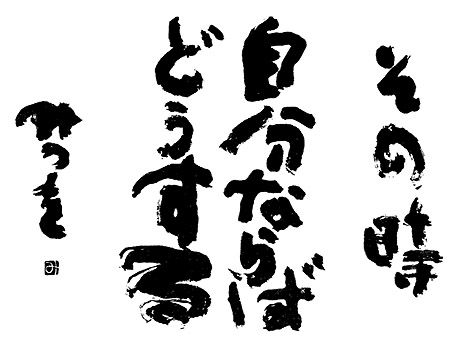 その時
自分ならば
どうする
みつを
み